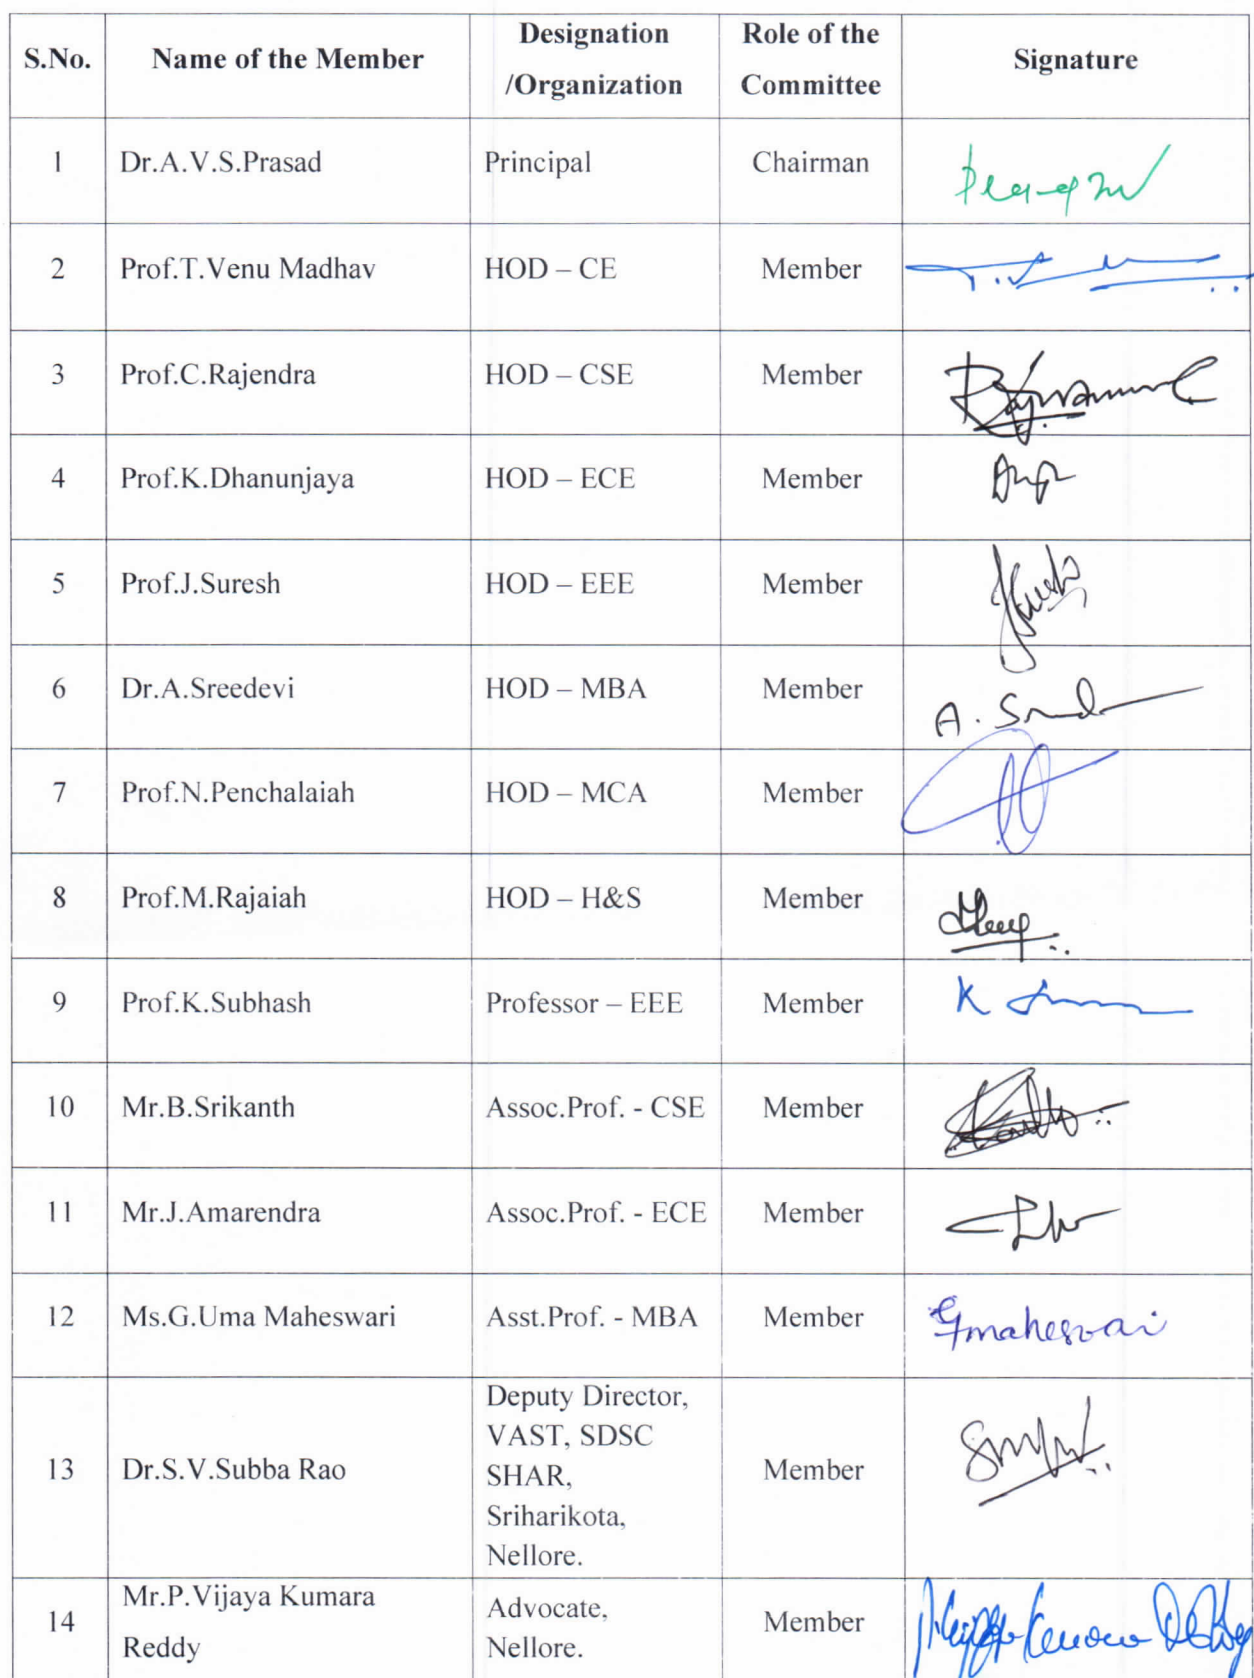 S.No. Name of the Member Designation /Organization Role of the Committee Signature
1 Dr.A.V.S.Prasad Principal Chairman
2 Prof.T.Venu Madhav HOD – CE Member
3 Prof.C.Rajendra HOD – CSE Member
4 Prof.K.Dhanunjaya HOD – ECE Member
5 Prof.J.Suresh HOD – EEE Member
6 Dr.A.Sreedevi HOD – MBA Member
7 Prof.N.Penchalaiah HOD – MCA Member
8 Prof.M.Rajaiah HOD – H&S Member
9 Prof.K.Subhash Professor – EEE Member
10 Mr.B.Srikanth Assoc.Prof. - CSE Member
11 Mr.J.Amarendra Assoc.Prof. - ECE Member
12 Ms.G.Uma Maheswari Asst.Prof. - MBA Member
13 Dr.S.V.Subba Rao Deputy Director,
VAST, SDSC
SHAR,
Sriharikota,
Nellore. Member
14 Mr.P.Vijaya Kumara
Reddy Advocate,
Nellore. Member